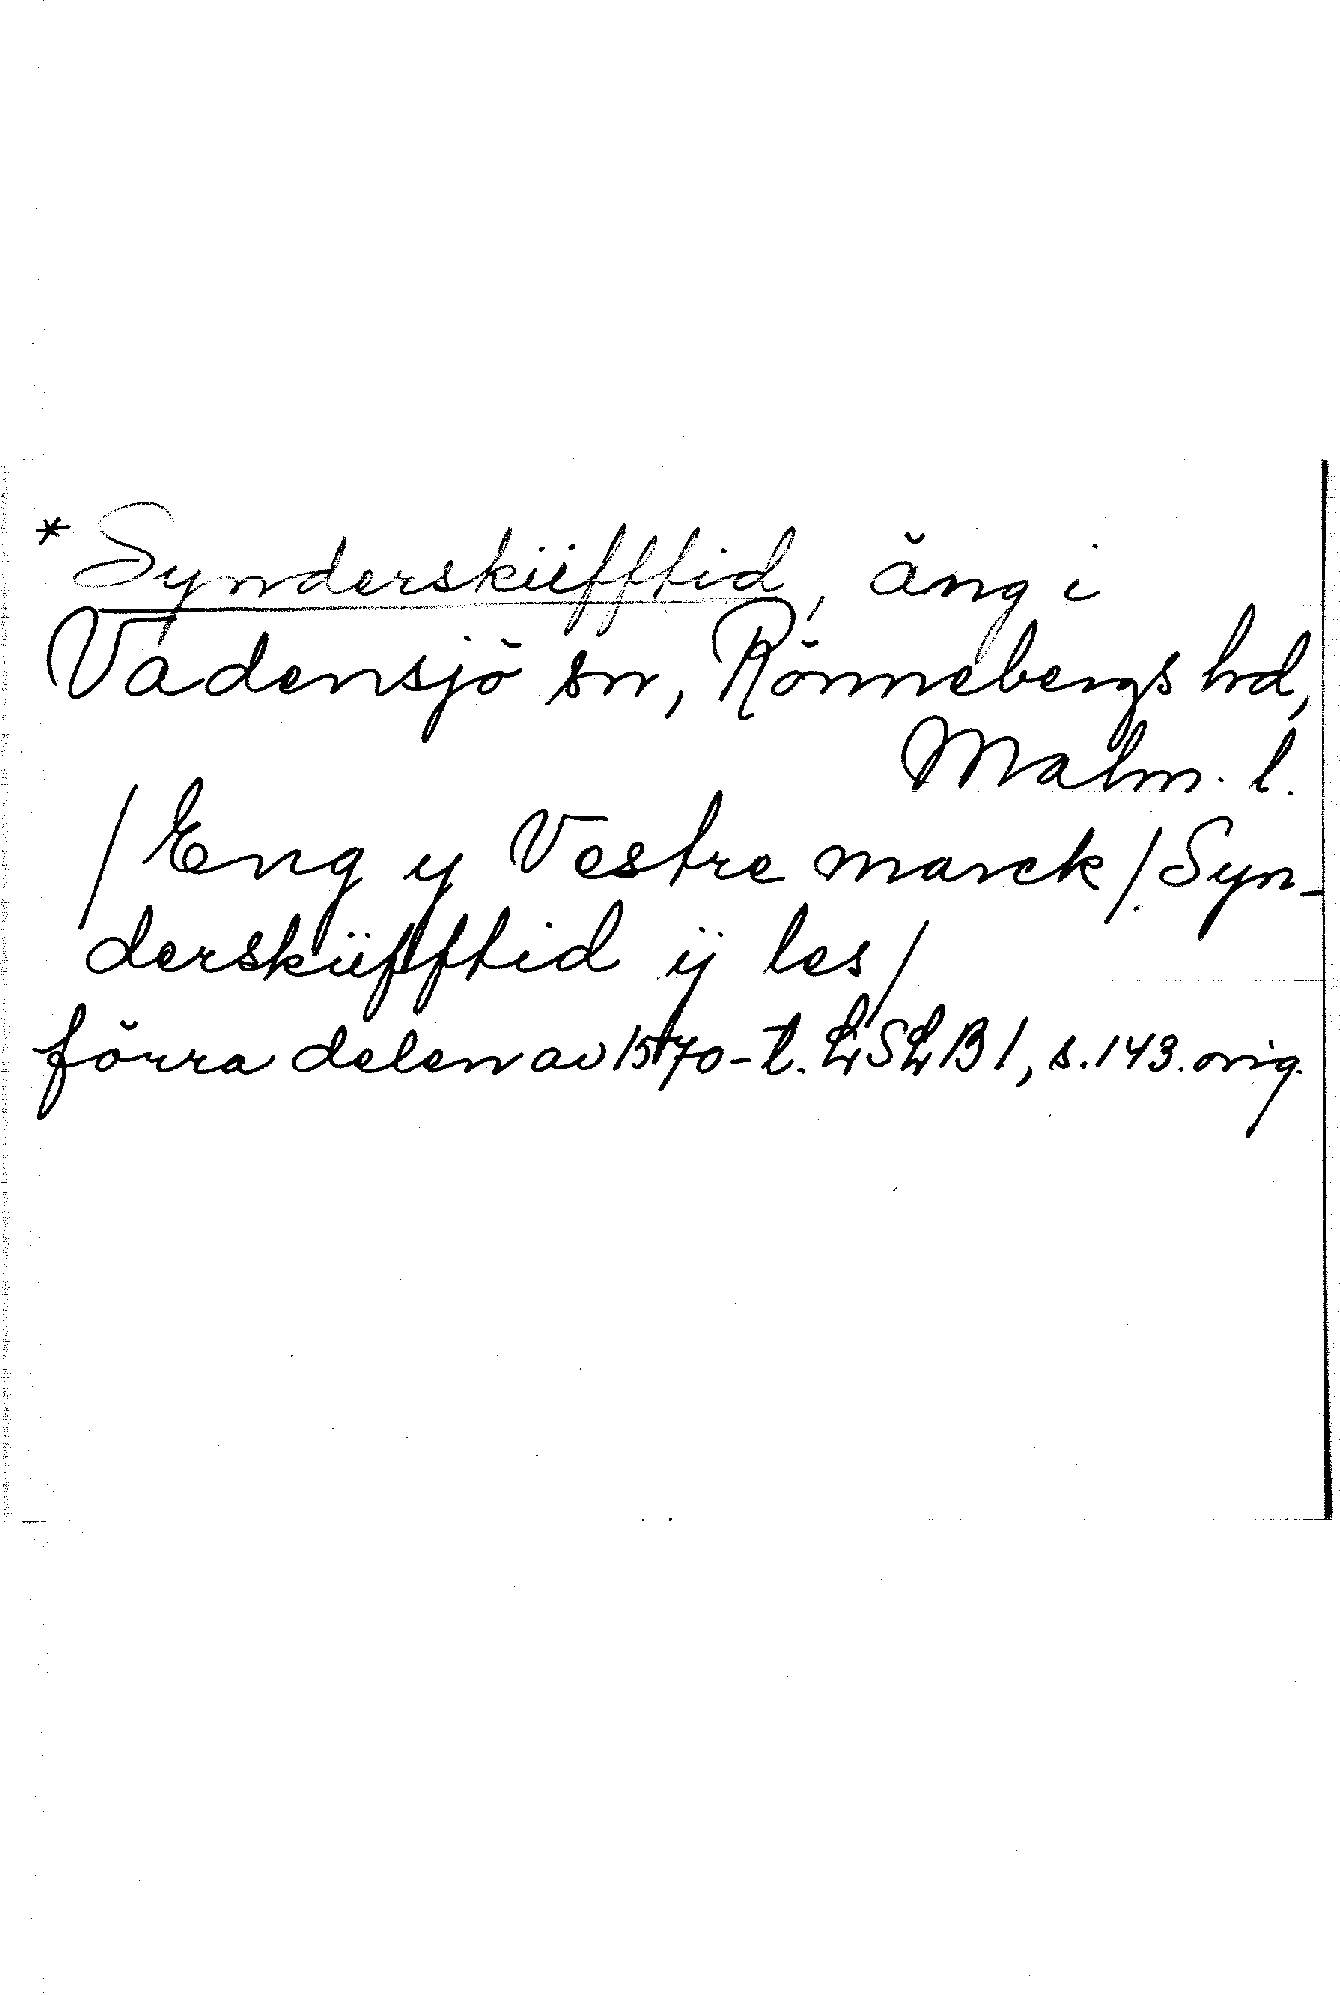 * Synderskiifftid, äng i
Vadensjö sn, Rönnebergs hd,
Malm. l.
/Eng y Vestre marck/Syn-
derskiifftid ij les/
förra delen av 1570-t. LSLB1, s.143. orig.